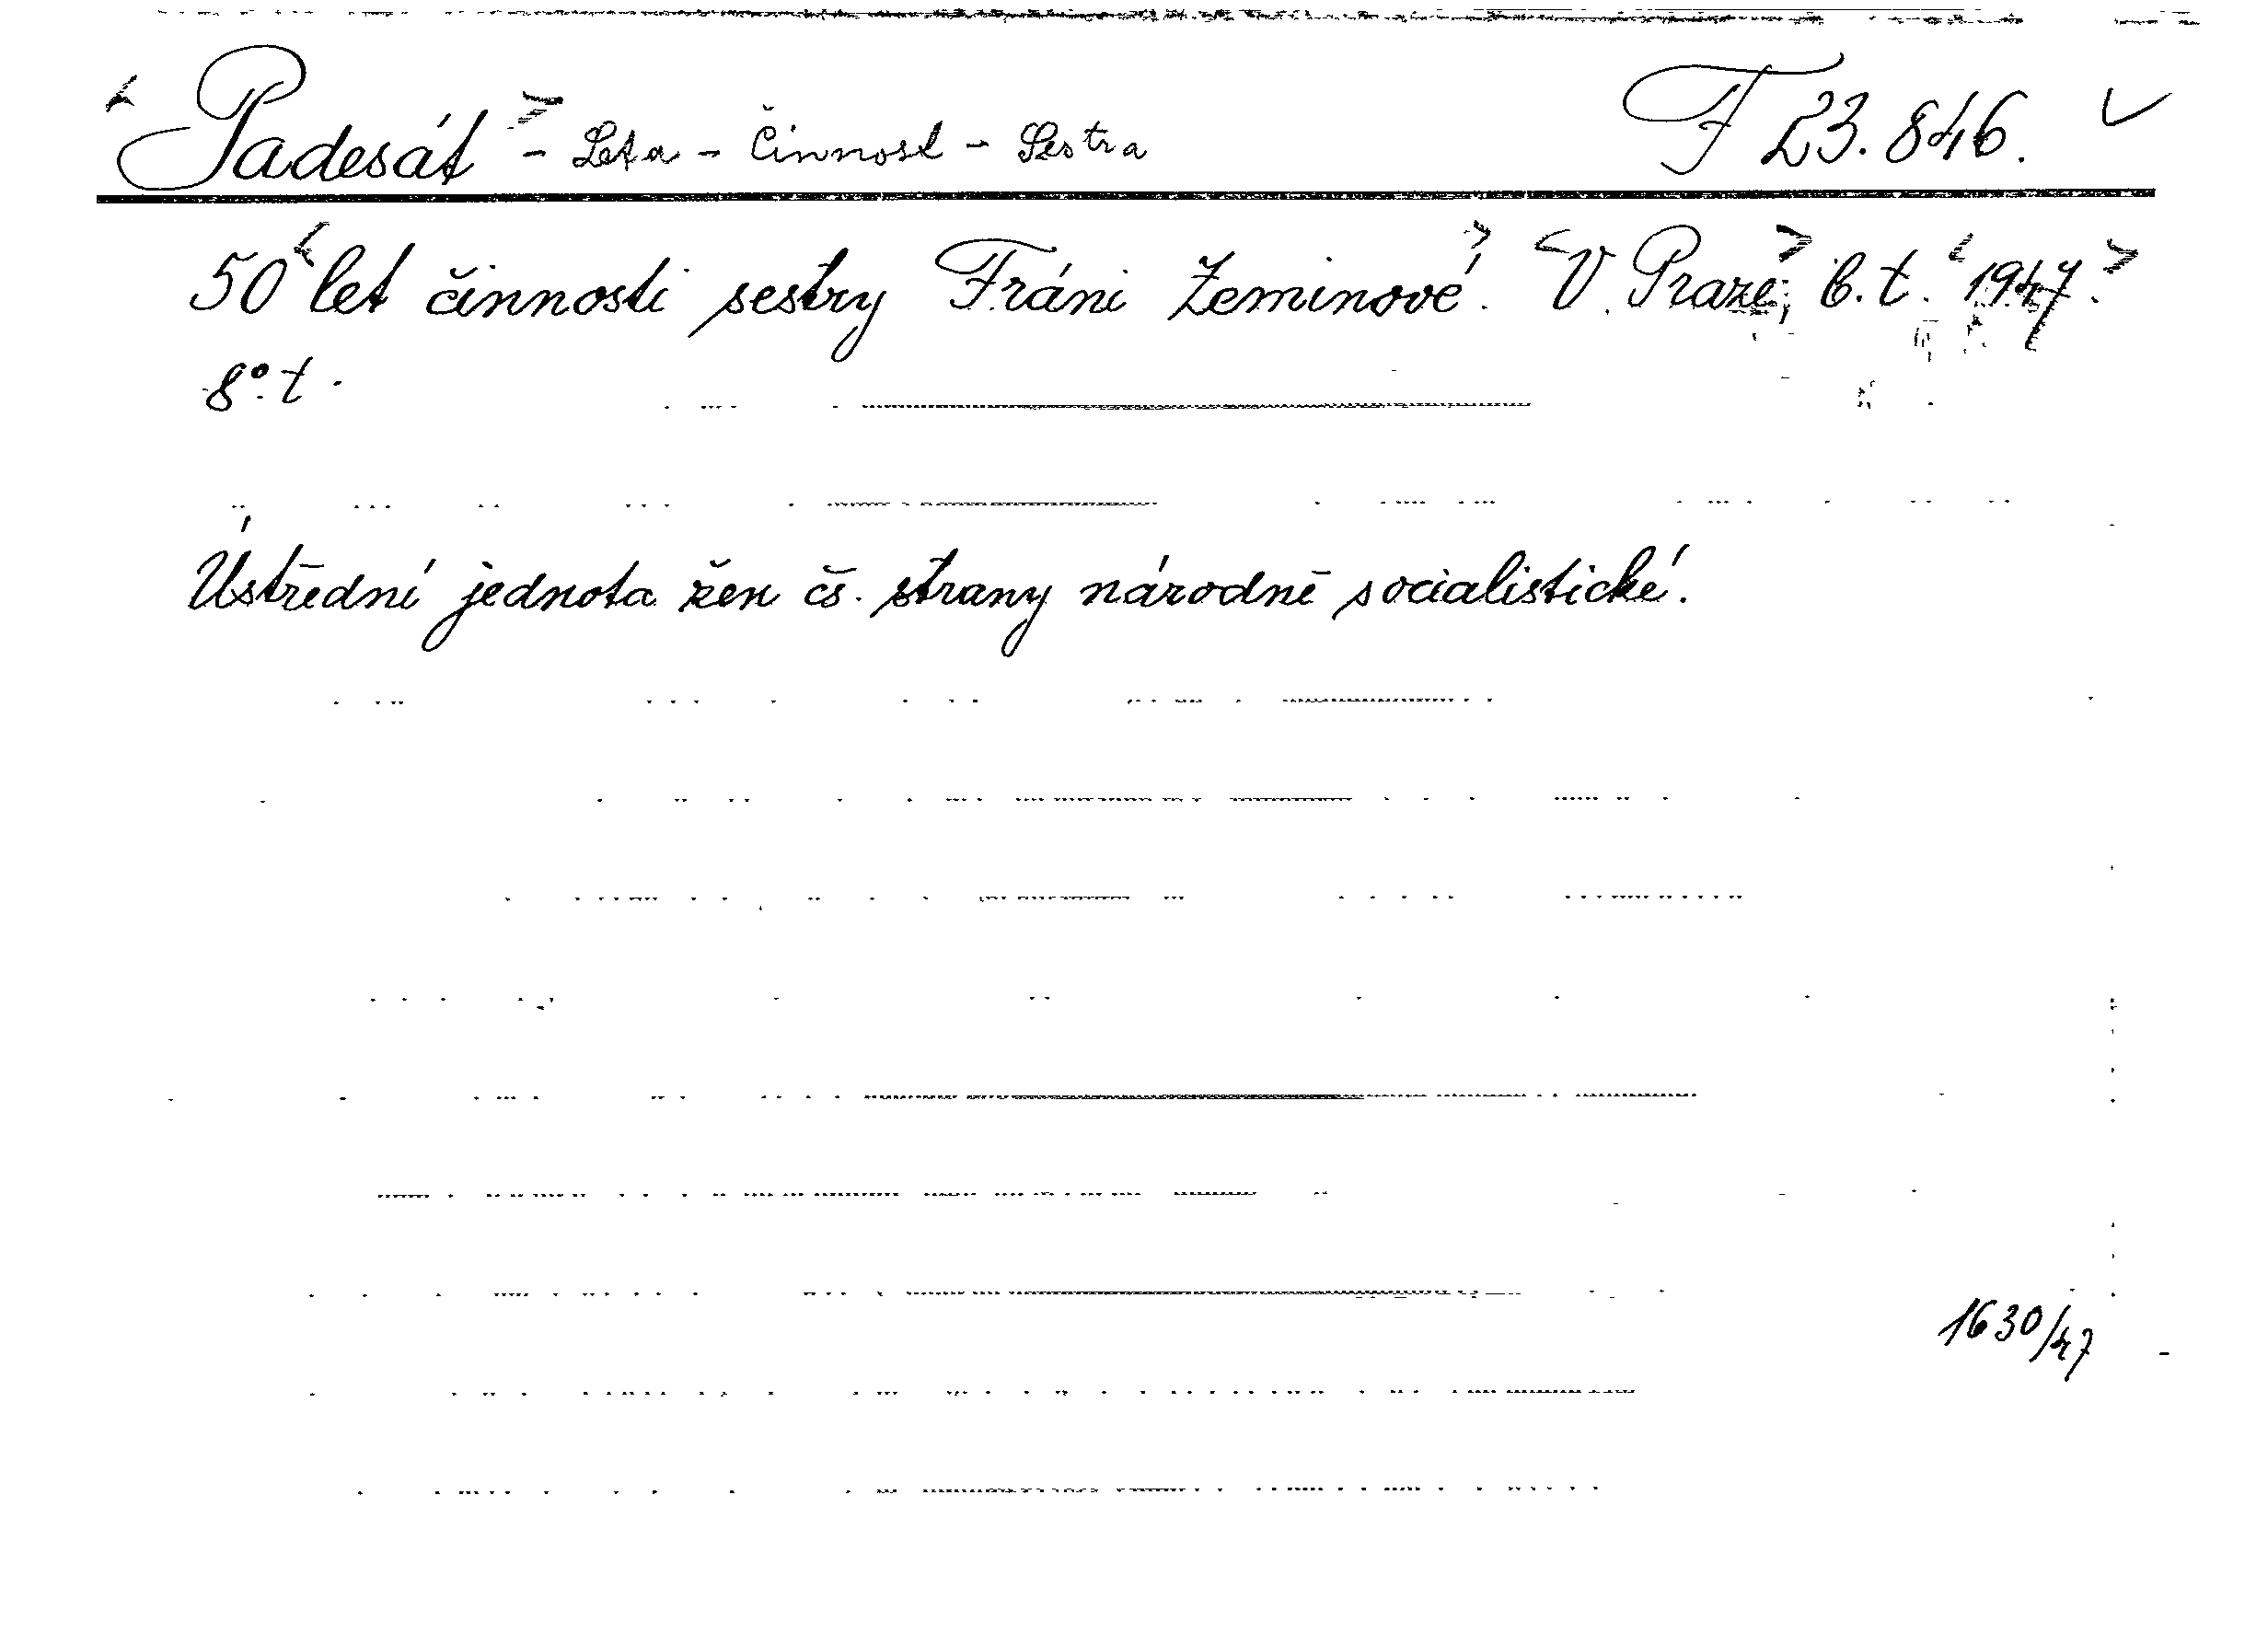 < Padesát > - Leta - Činnost - Sestra F 23.846. ✓
50 < let činnosti sestry Fráni Zeminové. > < V Praze, > b. t. < 1947. >
8°. t.
Ústřední jednota žen čs. strany národně socialistické.
1630/47